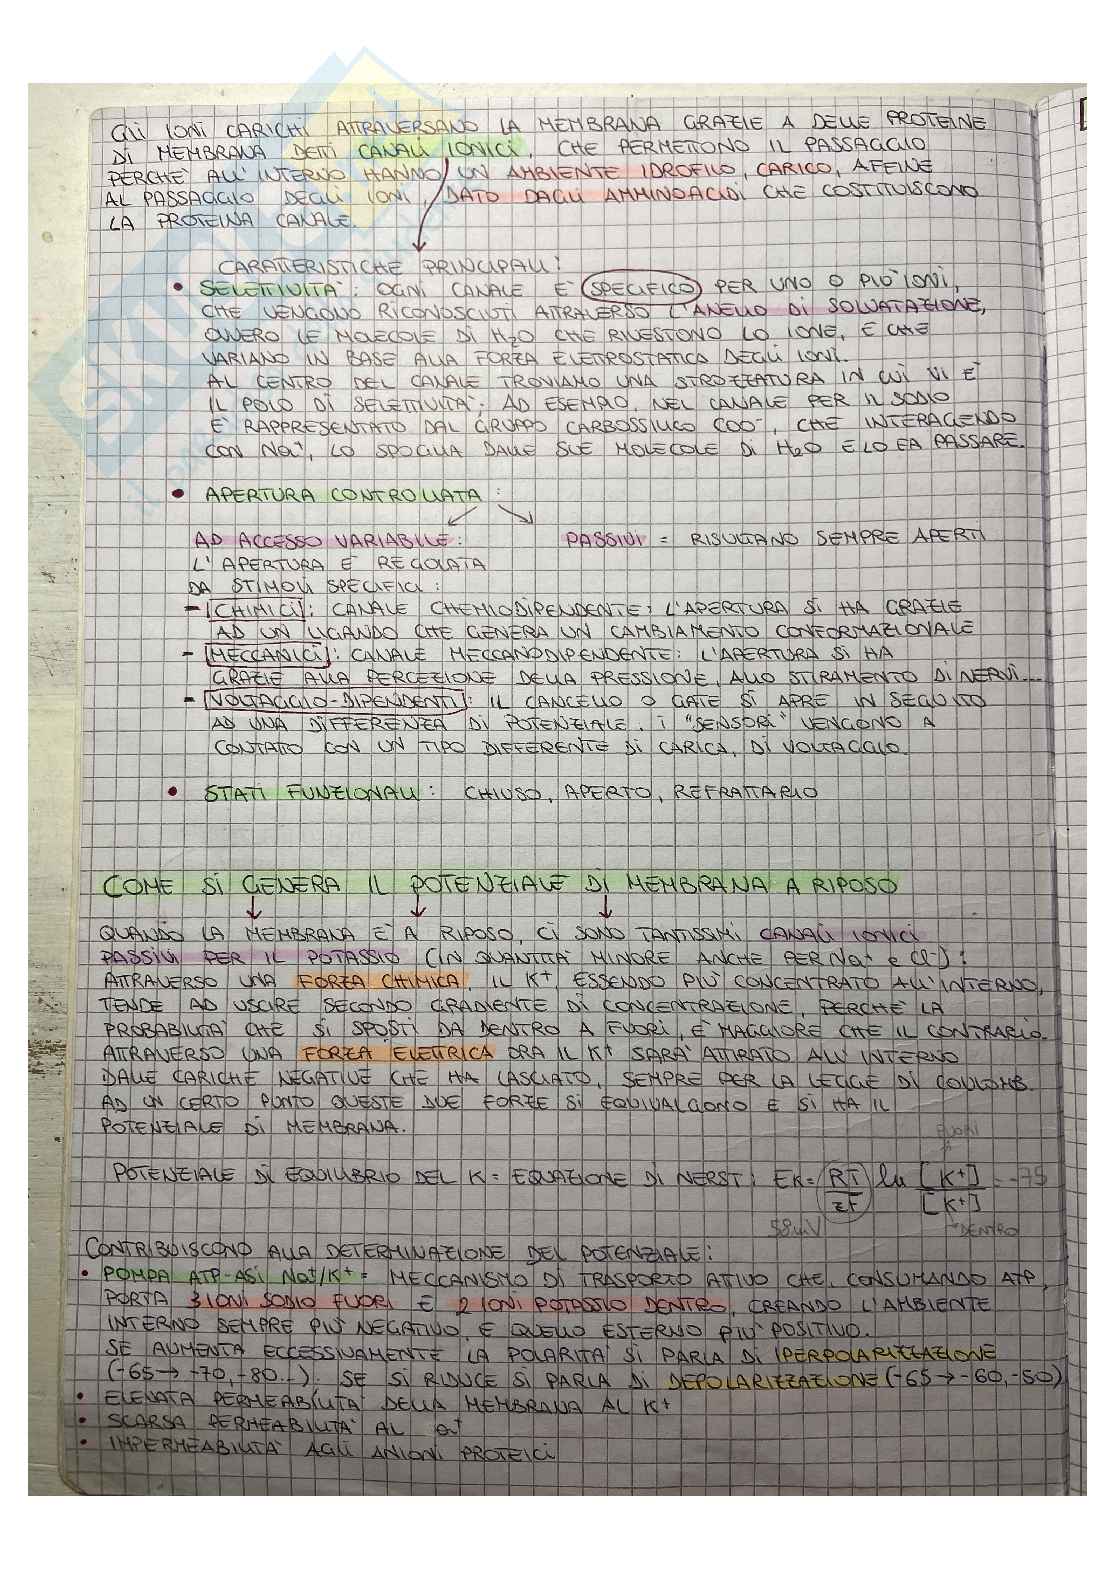 GLI IONI CARICHI ATTRAVERSANO LA MEMBRANA GRAZIE A DELLE PROTEINE
DI MEMBRANA DETTI CANALI IONICI, CHE PERMETTONO IL PASSAGGIO
PERCHE' ALL'INTERNO HANNO UN AMBIENTE IDROFILO, CARICO, AFFINE
AL PASSAGGIO DEGLI IONI, DATO DAGLI AMMINOACIDI CHE COSTITUISCONO
LA PROTEINA CANALE.
CARATTERISTICHE PRINCIPALI:
• SELETTIVITA': OGNI CANALE E' SPECIFICO PER UNO O PIU' IONI,
CHE VENGONO RICONOSCIUTI ATTRAVERSO L'ANELLO DI SOLVATAZIONE,
OVVERO LE MOLECOLE DI H2O CHE RIVESTONO LO IONE, E CHE
VARIANO IN BASE ALLA FORZA ELETROSTATICA DEGLI IONI.
AL CENTRO DEL CANALE TROVIAMO UNA STROZZATURA IN CUI VI E'
IL POLO DI SELETTIVITA'; AD ESEMPIO, NEL CANALE PER IL SODIO
E' RAPPRESENTATO DAL GRUPPO CARBOSSILICO COO-, CHE INTERAGENDO
CON Na+, LO SPOGLIA DALLE SUE MOLECOLE DI H2O E LO FA PASSARE.
• APERTURA CONTROLLATA:
AD ACCESSO VARIABILE: PASSIVI = RISULTANO SEMPRE APERTI
L'APERTURA E' REGOLATA
DA STIMOLI SPECIFICI:
- CHIMICI: CANALE CHEMIODIPENDENTE: L'APERTURA SI HA GRAZIE
AD UN LIGANDO CHE GENERA UN CAMBIAMENTO CONFORMAZIONALE
- MECCANICI: CANALE MECCANODIPENDENTE: L'APERTURA SI HA
GRAZIE ALLA PERCEZIONE DELLA PRESSIONE, ALLO STIRAMENTO DI NERVI...
- VOLTAGGIO-DIPENDENTI: IL CANCELLO O GATE SI APRE IN SEGUITO
AD UNA DIFFERENZA DI POTENZIALE. I "SENSORI" VENGONO A
CONTATTO CON UN TIPO DIFFERENTE DI CARICA, DI VOLTAGGIO.
• STATI FUNZIONALI: CHIUSO, APERTO, REFRATTARIO
COME SI GENERA IL POTENZIALE DI MEMBRANA A RIPOSO
QUANDO LA MEMBRANA E' A RIPOSO, CI SONO TANTISSIMI CANALI IONICI
PASSIVI PER IL POTASSIO (IN QUANTITA' MINORE ANCHE PER Na+ e Cl-):
ATTRAVERSO UNA FORZA CHIMICA, IL K+, ESSENDO PIU' CONCENTRATO ALL'INTERNO,
TENDE AD USCIRE SECONDO GRADIENTE DI CONCENTRAZIONE, PERCHE' LA
PROBABILITA' CHE SI SPOSTI DA DENTRO A FUORI, E' MAGGIORE CHE IL CONTRARIO.
ATTRAVERSO UNA FORZA ELETTRICA ORA IL K+ SARA' ATTIRATO ALL'INTERNO
DALLE CARICHE NEGATIVE CHE HA LASCIATO, SEMPRE PER LA LEGGE DI COULOMB.
AD UN CERTO PUNTO QUESTE DUE FORZE SI EQUIVALGONO E SI HA IL
POTENZIALE DI MEMBRANA.
FUORI
POTENZIALE DI EQUILIBRIO DEL K = EQUAZIONE DI NERST: EK = RT/zF ln [K+]/[K+] = -75
58mV DENTRO
CONTRIBUISCONO ALLA DETERMINAZIONE DEL POTENZIALE:
• POMPA ATP-ASI Na+/K+ = MECCANISMO DI TRASPORTO ATTIVO CHE, CONSUMANDO ATP,
PORTA 3 IONI SODIO FUORI E 2 IONI POTASSIO DENTRO, CREANDO L'AMBIENTE
INTERNO SEMPRE PIU' NEGATIVO, E QUELLO ESTERNO PIU' POSITIVO.
SE AUMENTA ECCESSIVAMENTE LA POLARITA' SI PARLA DI IPERPOLARIZZAZIONE
(-65 → -70, -80...). SE SI RIDUCE SI PARLA DI DEPOLARIZZAZIONE (-65 → -60, -50)
• ELEVATA PERMEABILITA' DELLA MEMBRANA AL K+
• SCARSA PERMEABILITA' AL
• IMPERMEABILITA' AGLI ANIONI PROTEICI